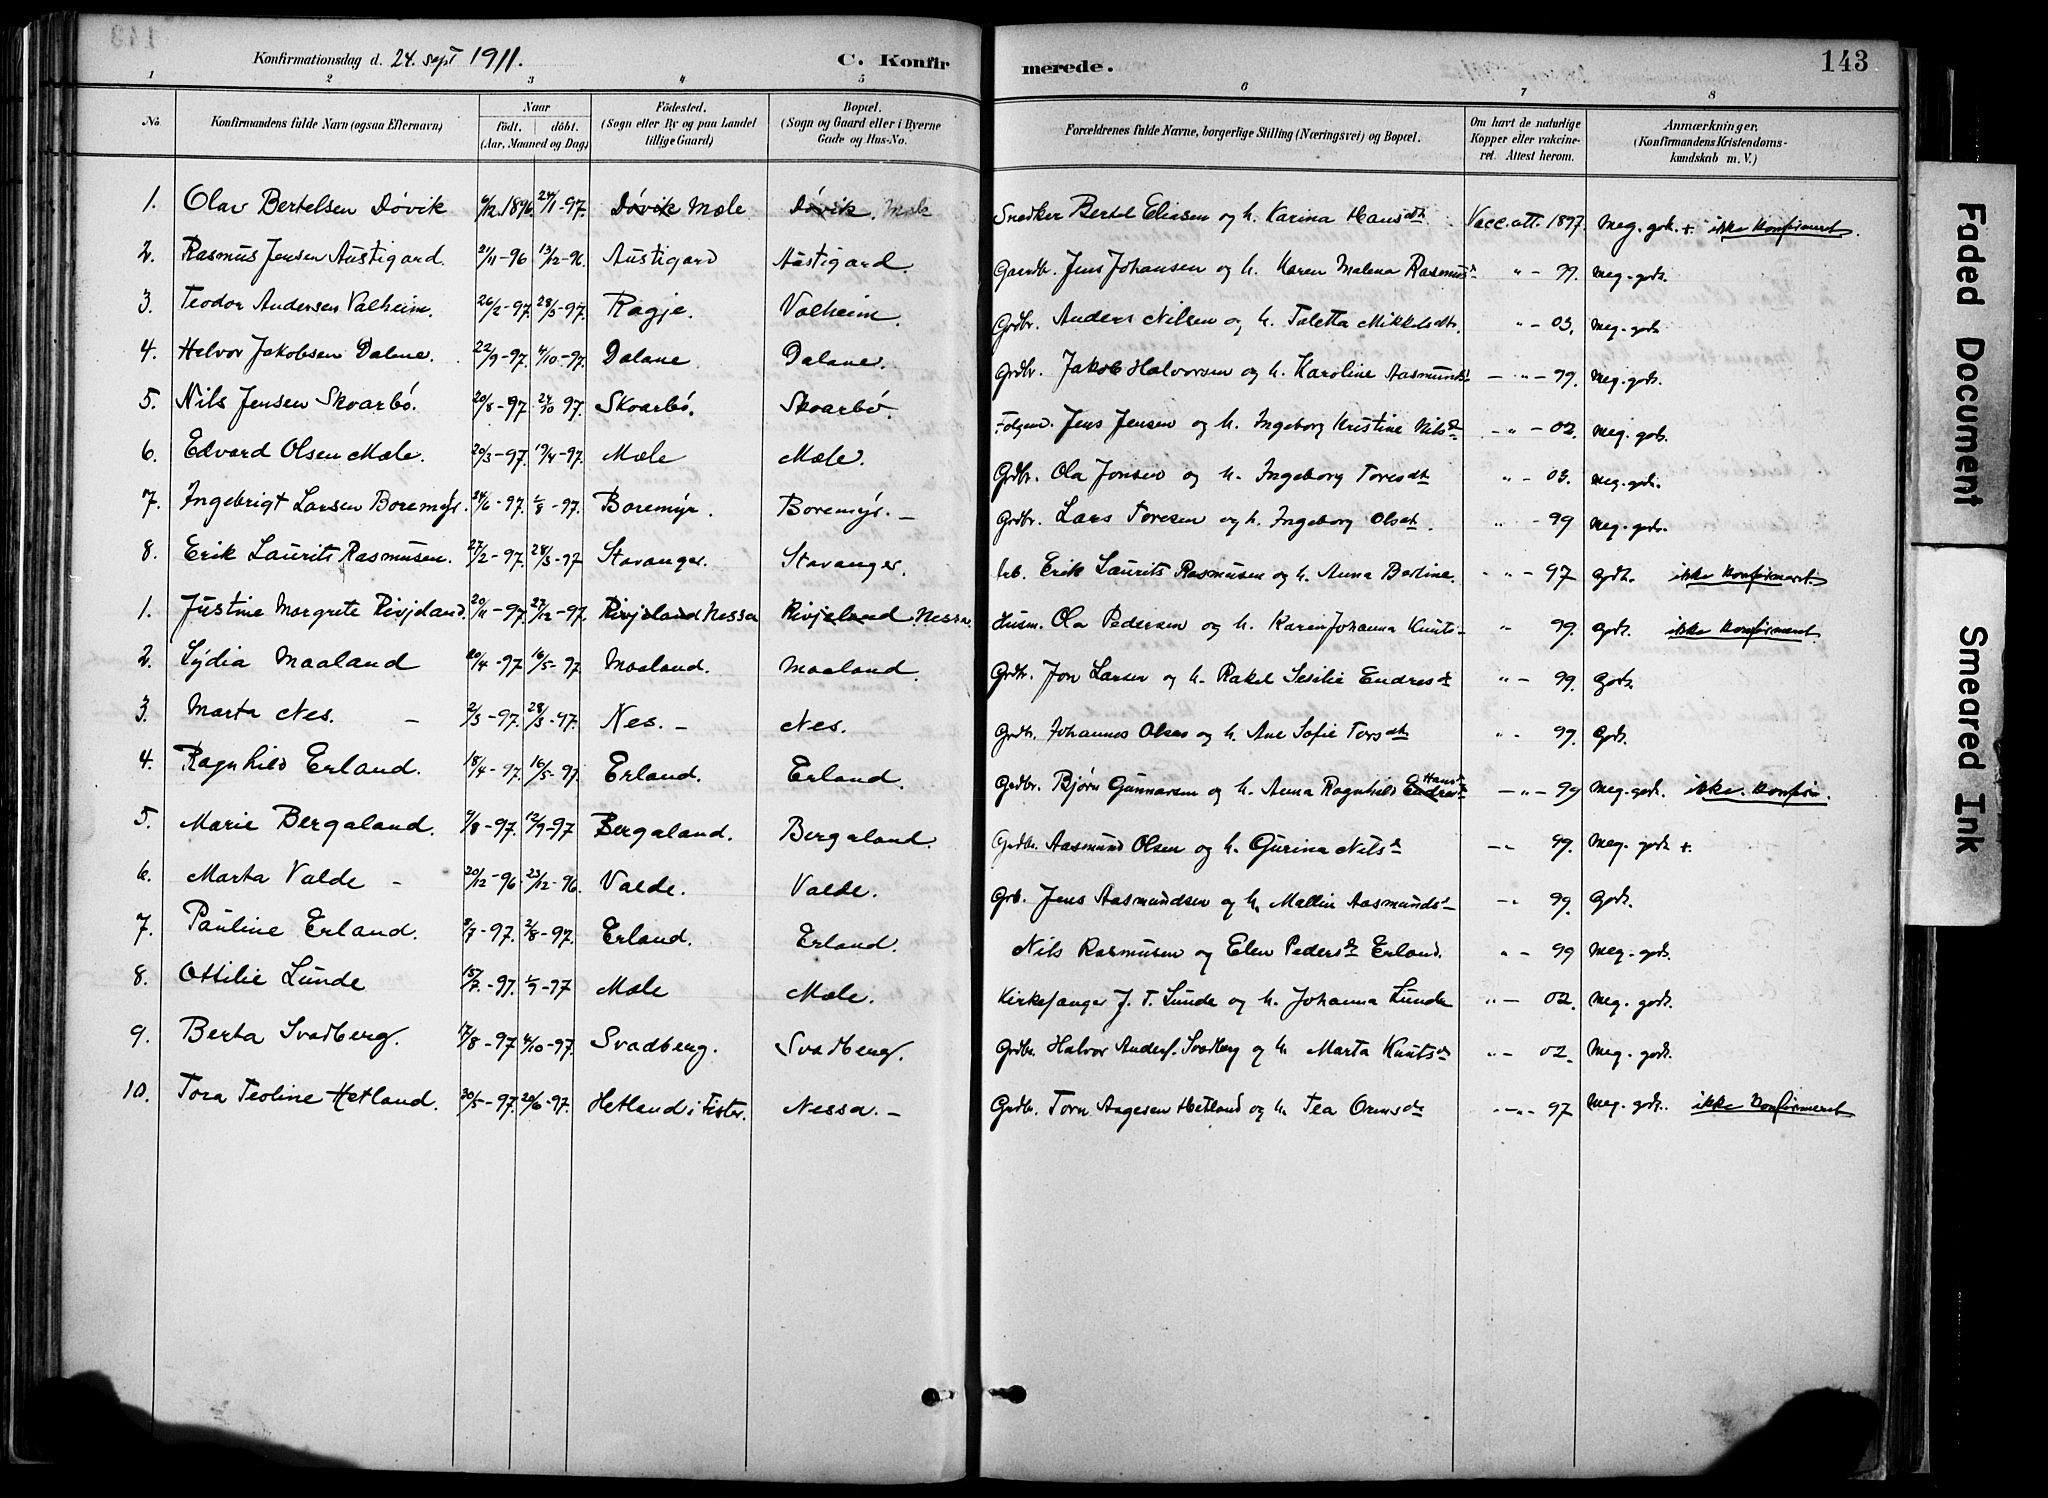 Konfirmationsdag d. 24. sept 1911. C. Konfirmerede. 143
1 2 3 4 5 6 7 8
No. Konfirmandens fulde Navn (ogsaa Efternavn) Naar födt. döbt. (Aar, Maaned og Dag) Födested. (Sogn eller By og paa Landet tillige Gaard) Bopæl. (Sogn og Gaard eller i Byerne Gade og Hus-No. Forældrenes fulde Navne, borgerlige Stilling (Næringsvei) og Bopæl. Om havt de naturlige Kopper eller vakcineret. Attest herom. Anmærkninger. (Konfirmandens Kristendomskundskab m. V.)
1. Olav Bertelsen Døvik 6/12 1896. 24/1-97. Døvik Mæle Døvik. Mæle Snedker Bertel Eliasen og h. Karina Hansdt. Vacc. att. 1897. Meg. godt. + ikke konfirmert.
2. Rasmus Jensen Austigard. 21/11-96 13/12-96. Austigard Austigard. Gaardbr. Jens Johansen og h. Karen Malena Rasmusd. " - 97. Meg. godt.
3. Teodor Andersen Valheim. 26/2-97. 28/3-97. Ragje. Valheim. Grdbr. Anders Nilsen og h. Taletta Mikkelsdt. " - 03. Meg. godt
4. Helvor Jakobsen Dalane. 22/9-97. 4/10-97. Dalane Dalane. Grdbr. Jakob Halvorsen og h. Karoline Aasmundsd. - " - 99. Meg. godt.
5. Nils Jensen Skvarbø. 20/8-97. 24/10-97. Skvarbø. Skvarbø. Jens Jensen og h. Ingeborg Kristine Nilsd. - " - 02. Meg. godt.
6. Edvard Olsen Mæle. 20/3-97. 19/4-97. Mæle Mæle. Grdbr. Ola Jonsen og h. Ingeborg Toresdt " - 03. Meg. godt.
7. Ingebrigt Larsen Boremyr. 24/6-97. 1/8-97. Boremyr. Boremyr. - Grdbr. Lars Toresen og h. Ingeborg Olsdt. " - 99 Meg. godt.
8. Erik Laurits Rasmusen. 27/2-97. 28/3-97 Stavanger. Stavanger. Arb. Erik Laurits Rasmusen og h. Anna Bertine. " " - 97 Godt. ikke konfirmeret
1. Justine Margrete Rivjeland. 20/11-97. 27/12-97. Rivjeland Nessa Rivjeland. Nessa. Husm. Ola Pedersen og h. Karen Johanna Knuts- " 99. Godt. ikke konfirmert
2. Lydia Maaland 20/4-97. 16/5-97 Maaland. Maaland. Grdbr. Jon Larsen og h. Rakel Sesilie Endresdt " - 99. Godt.
3. Marta Nes. - 2/3-97. 28/3-97. Nes. - Nes. Grdbr. Johannes Olsen og h. Ane Sofie Torsdt " - 99. Godt.
4. Ragnhild Erland. 18/4-97. 16/5-97. Erland. Erland. Grdbr. Bjørn Gunnarsen og h. Anna Ragnhild Endresdt Hansdt - " - 99 Meg. godt. ikke konfirm.
5. Marie Bergaland. 9/8-97. 12/9-97 Bergaland. Bergaland. Grdbr. Aasmund Olsen og h. Gurina Nilsd - " 99. Meg. godt +.
6. Marta Valde - 20/12-96. 23/12-96. Valde. Valde. Grb. Jens Aasmundsen og h. Mallin Aasmundsd - " 99. Godt.
7. Pauline Erland. 8/7-97. 2/8-97. Erland. Erland. Nils Rasmusen og Elen Pedersdt Erland. " - 99 Meg. godt.
8. Ottilie Lunde 15/7-97. 1/9-97 Mæle Mæle. Kirkesanger J. T. Lunde og h. Johanna Lunde " - 02. Meg. godt.
9. Berta Svadberg. 17/8-97. 4/10-97. Svadberg. Svadberg. Grdbr. Halvor Anders. Svadberg og h. Marta Knutsdt " - 02. Meg. godt.
10. Tora Teoline Hetland. 30/5-97. 20/6-97. Hetland i Fister. Nessa. - Grdbr. Torn Aagesen Hetland og h. Tea Ormsdt - " - 97 Meg. godt. ikke konfirmeret
Faded Document
Smeared Ink